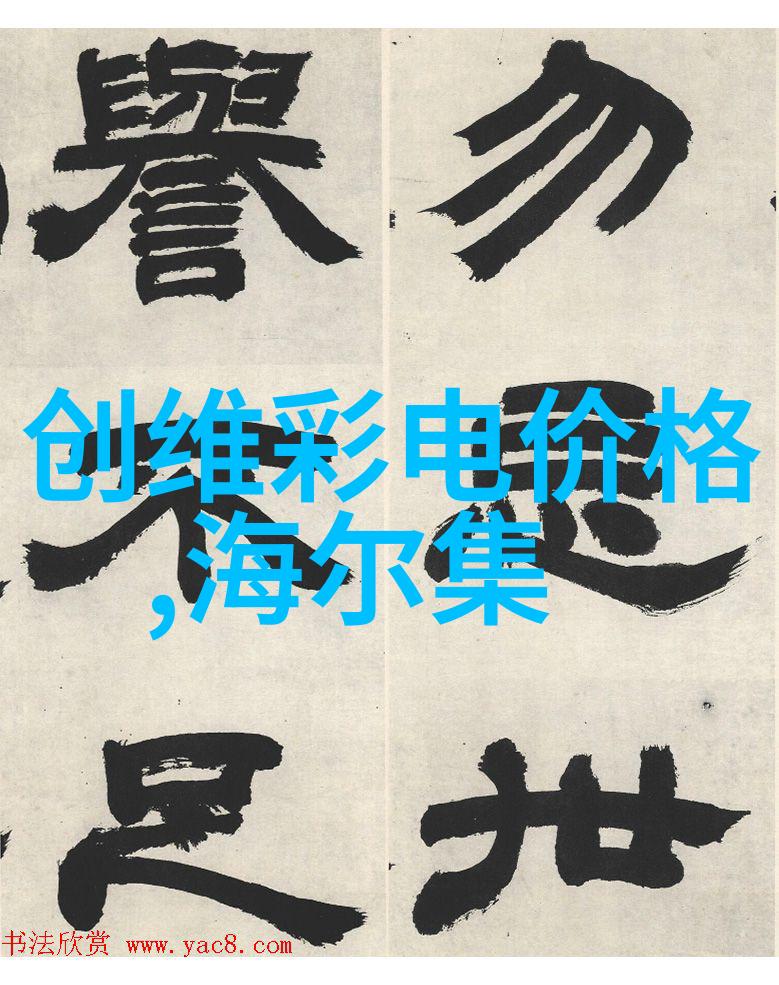 勿思世
譽不足
创维彩电价格
,海尔集
书法欣赏 www.yac8.com